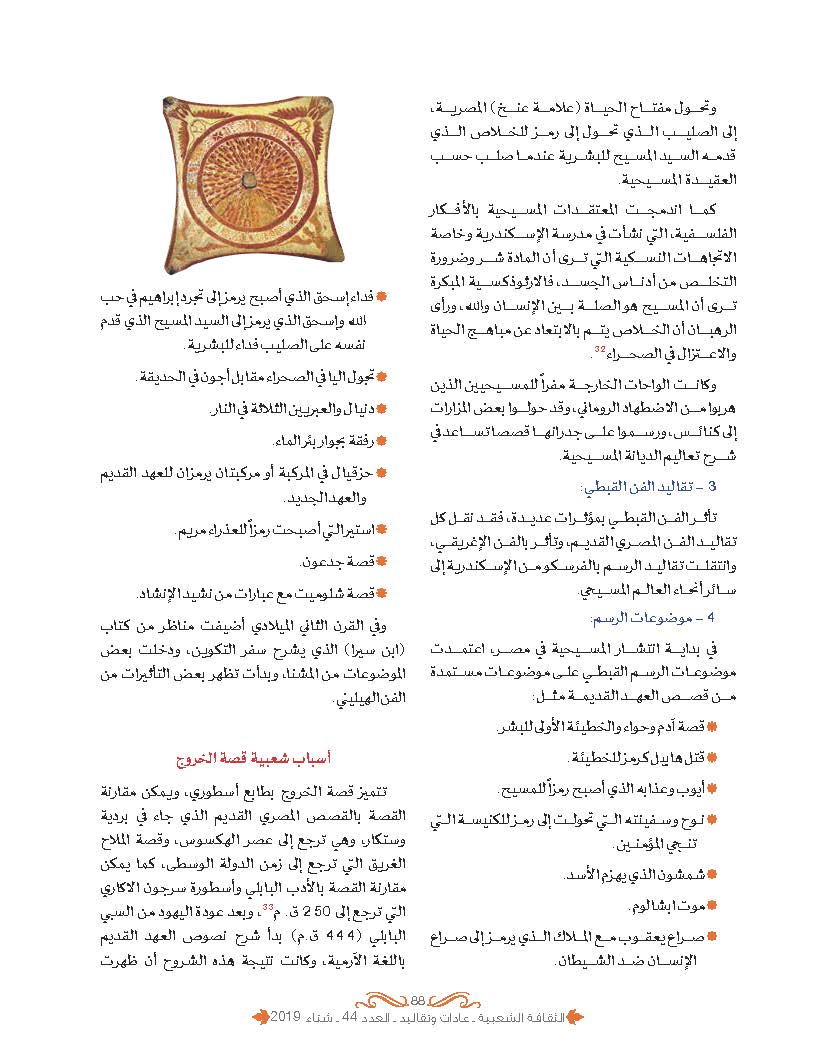 وتحول مفتاح الحياة (علامة عنخ) المصرية،
إلى الصليب الذي تحول إلى رمز للخلاص الذي
قدمه السيد المسيح للبشرية عندما صلب حسب
العقيدة المسيحية.
كما اندمجت المعتقدات المسيحية بالأفكار
الفلسفية، التي نشأت في مدرسة الإسكندرية وخاصة
الاتجاهات النسكية التي ترى أن المادة شر وضرورة
التخلص من أدناس الجسد، فالارثوذكسية المبكرة
ترى أن المسيح هو الصلة بين الإنسان والله، ورأى
الرهبان أن الخلاص يتم بالابتعاد عن مباهج الحياة
والاعتزال في الصحراء32.
وكانت الواحات الخارجة مفراً للمسيحيين الذين
هربوا من الاضطهاد الروماني، وقد حولوا بعض المزارات
إلى كنائس، ورسموا على جدرانها قصصا تساعد في
شرح تعاليم الديانة المسيحية.
3 – تقاليد الفن القبطي:
تأثر الفن القبطي بمؤثرات عديدة، فقد نقل كل
تقاليد الفن المصري القديم، وتأثر بالفن الإغريقي،
وانتقلت تقاليد الرسم بالفرسكو من الإسكندرية إلى
سائر أنحاء العالم المسيحي.
4 – موضوعات الرسم:
في بداية انتشار المسيحية في مصر، اعتمدت
موضوعات الرسم القبطي على موضوعات مستمدة
من قصص العهد القديمة مثل:
قصة آدم وحواء والخطيئة الأولى للبشر.
قتل هابيل كرمز للخطيئة.
أيوب وعذابه الذي أصبح رمزاً للمسيح.
نوح وسفينته التي تحولت إلى رمز للكنيسة التي
تنجي المؤمنين.
شمشون الذي يهزم الأسد.
موت ابشالوم.
صراع يعقوب مع الملاك الذي يرمز إلى صراع
الإنسان ضد الشيطان.
فداء إسحق الذي أصبح يرمز إلى تجرد إبراهيم في حب
الله وإسحق الذي يرمز إلى السيد المسيح الذي قدم
نفسه على الصليب فداء للبشرية.
تجول اليا في الصحراء مقابل أجون في الحديقة.
دنيال والعبريين الثلاثة في النار.
رفقة بجوار بئر الماء.
حزقيال في المركبة أو مركبتان يرمزان للعهد القديم
والعهد الجديد.
استير التي أصبحت رمزاً للعذراء مريم.
قصة جدعون.
قصة شلوميت مع عبارات من نشيد الإنشاد.
وفي القرن الثاني الميلادي أضيفت مناظر من كتاب
(ابن سيرا) الذي يشرح سفر التكوين، ودخلت بعض
الموضوعات من المشنا، وبدأت تظهر بعض التأثيرات من
الفن الهيليني.
أسباب شعبية قصة الخروج
تتميز قصة الخروج بطابع أسطوري، ويمكن مقارنة
القصة بالقصص المصري القديم الذي جاء في بردية
وستكار، وهي ترجع إلى عصر الهكسوس، وقصة الملاح
الغريق التي ترجع إلى زمن الدولة الوسطى، كما يمكن
مقارنة القصة بالأدب البابلي وأسطورة سرجون الاكاري
التي ترجع إلى 250 ق. م33، وبعد عودة اليهود من السبي
البابلي (444 ق.م) بدأ شرح نصوص العهد القديم
باللغة الآرمية، وكانت نتيجة هذه الشروح أن ظهرت
88
الثقافة الشعبية ـ عادات وتقاليد ـ العدد 44 ـ شتاء 2019